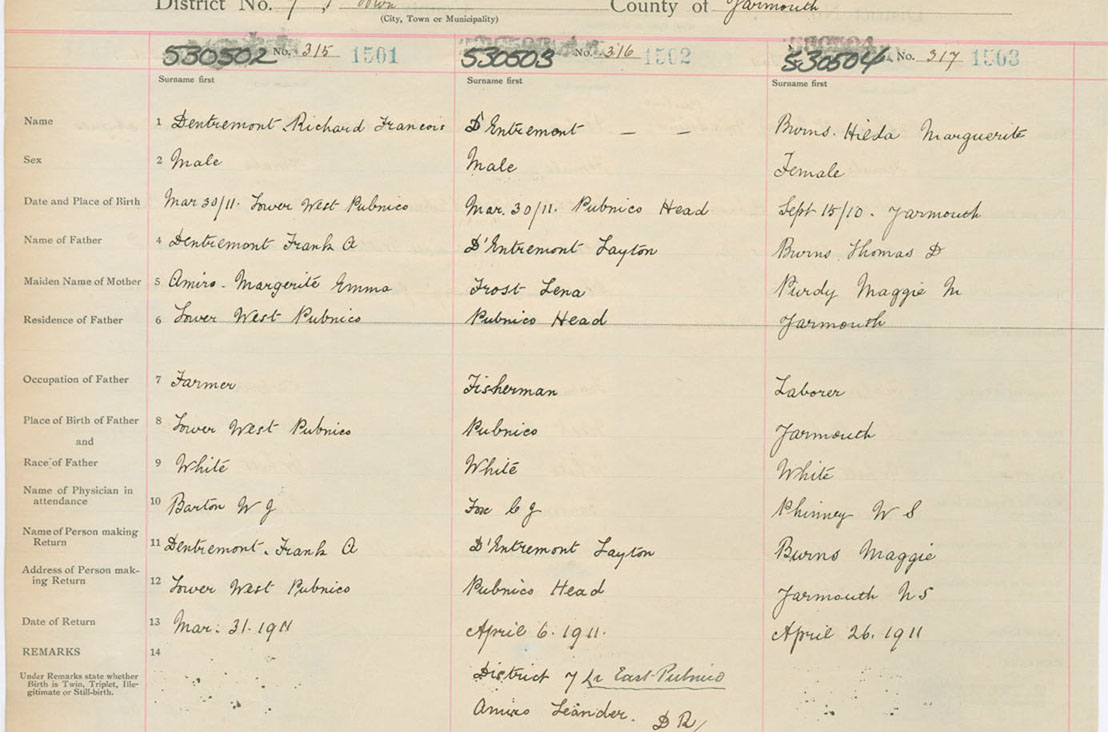 District No. 7, Town County of Yarmouth
(City, Town or Municipality)
530502 No. 315 1501 530503 No. 316 1502 530504 No. 317 1503
Surname first Surname first Surname first
Name 1 Dentremont Richard Francois D'Entremont — — Burns. Hilda Marguerite
Sex 2 Male Male Female
Date and Place of Birth 3 Mar 30/11. Lower West Pubnico Mar. 30/11. Pubnico Head Sept 15/10. Yarmouth
Name of Father 4 Dentremont Frank A D'Entremont Layton Burns Thomas D
Maiden Name of Mother 5 Amiro. Margerite Emma Frost Lena Purdy Maggie M
Residence of Father 6 Lower West Pubnico Pubnico Head Yarmouth
Occupation of Father 7 Farmer Fisherman Laborer
Place of Birth of Father 8 Lower West Pubnico Pubnico Yarmouth
and
Race of Father 9 White White White
Name of Physician in
attendance 10 Barton W J Fox C J Phinney W S
Name of Person making
Return 11 Dentremont. Frank A D'Entremont Layton Burns Maggie
Address of Person mak-
ing Return 12 Lower West Pubnico Pubnico Head Yarmouth N S
Date of Return 13 Mar. 31. 1911 April 6. 1911. April 26. 1911
REMARKS 14
Under Remarks state whether
Birth is Twin, Triplet, Ille-
gitimate or Still-birth.
District 7 Lr East Pubnico
Amiro Leander. D R